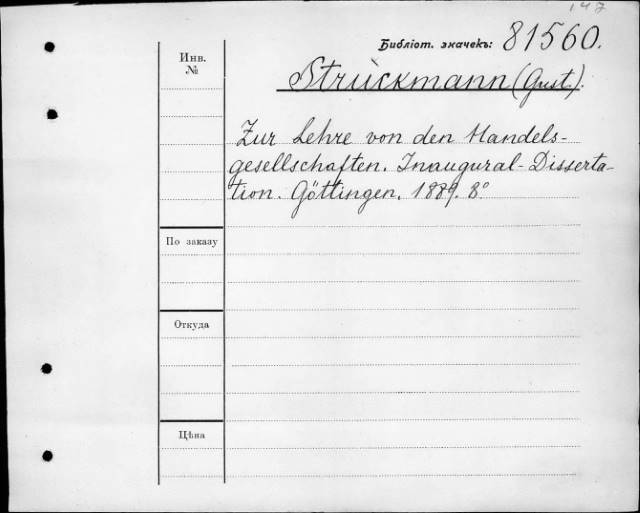 147
Библіот. значекъ: 81560.
Инв.
№
Struckmann (Gust.).
Zur Lehre von den Handels-
gesellschaften. Inaugural-Disserta-
tion. Göttingen. 1889. 8°
По заказу
Откуда
Цѣна